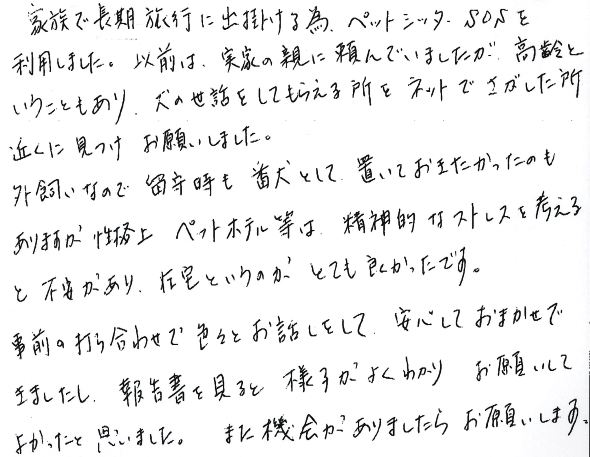 家族で長期旅行に出掛ける為、ペットシッターSOSを
利用しました。以前は、実家の親に頼んでいましたが、高齢と
いうこともあり、犬の世話をしてもらえる所をネットでさがした所
近くに見つけお願いしました。
外飼いなので留守時も番犬として、置いておきたかったのも
ありますが性格上ペットホテル等は、精神的なストレスを考える
と不安があり、在宅というのがとても良かったです。
事前の打ち合わせで色々とお話しをして、安心しておまかせで
きましたし、報告書を見ると様子がよくわかりお願いして
よかったと思いました。また機会がありましたらお願いします。